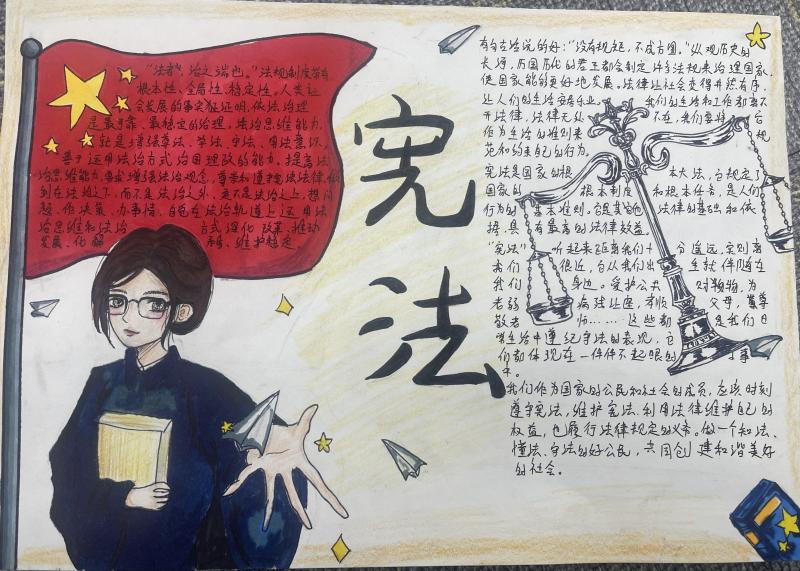 "法者，治之端也。"法规制度带有
根本性、全局性、稳定性。人类社
会发展的事实证明，依法治理
是最可靠、最稳定的治理，法治思维能力，
就是增强尊法、学法、守法、用法意识，
善于运用法治方式治国理政的能力。提高法
治思维能力，要求增强法治观念，尊崇和遵守宪法法律，做
到在法治之下，而不是法治之外、更不是法治之上，想问
题、作决策、办事情，自觉在法治轨道上运用法
治思维和法治方式深化改革、推动
发展、化解矛盾、维护稳定。
宪法
有句古话说的好："没有规矩，不成方圆。"纵观历史的
长河，历国历代的君王都会制定许多法规来治理国家，
使国家能够更好地发展。法律让社会变得井然有序，
让人们的生活安居乐业。我们的生活和工作都离不
开法律，法律无处不在，我们要将
作为生活的准则来规
范和约束自己的行为。
宪法是国家的根本大法，它规定了
国家的根本制度和根本任务，是人们
行为的基本准则。它是其他法律的基础和依
据，具有最高的法律效益。
"宪法"听起来距离我们十分遥远，实则离
我们很近，它从我们出生就伴随在
我们身边。爱护公共财物，为
老弱病残让座，孝顺父母，尊
敬老师……这些都是我们日
常生活中遵纪守法的表现，它
们都体现在一件件不起眼的小事
中。
我们作为国家的公民和社会的成员，应该时刻
遵守宪法，维护宪法，利用法律维护自己的
权益，也履行法律规定的义务。做一个知法、
懂法、守法的好公民，共同创建和谐美好
的社会。